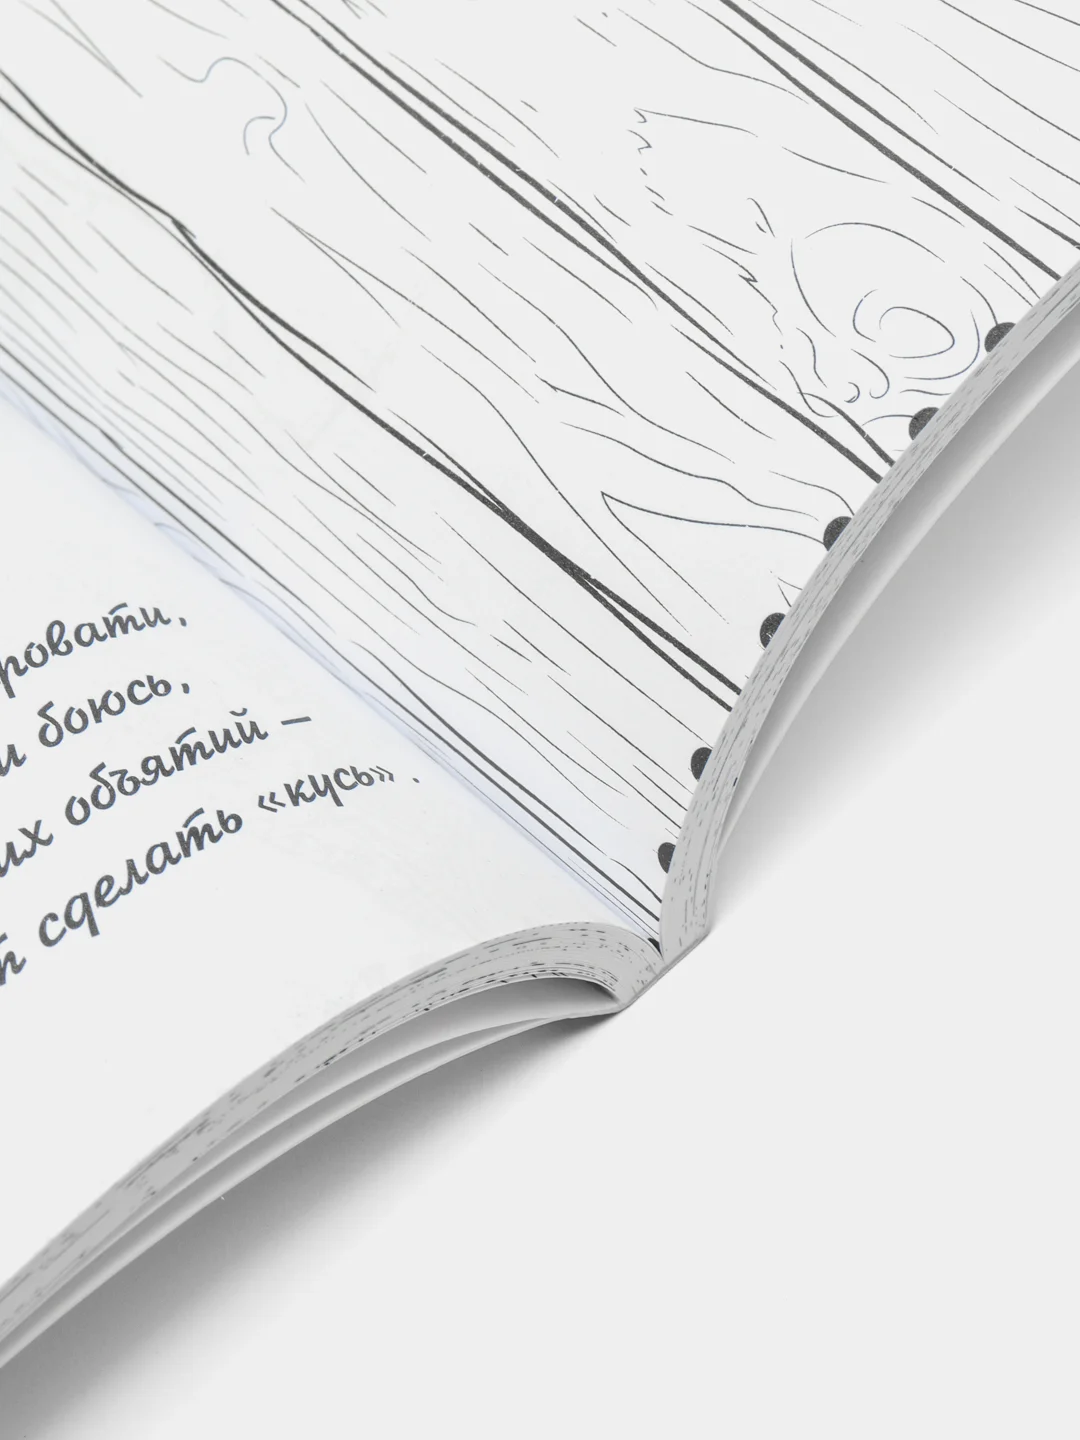 ровати,
и боюсь,
их объятий –
т сделать «кусь».